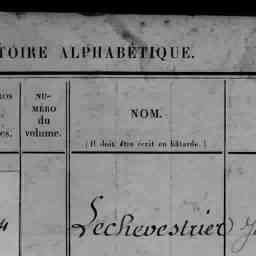 TOIRE ALPHABÉTIQUE.
ROS NU- NOM.
MÉRO
du
es. volume. ( Il doit être écrit en bâtarde. )
4 Lechevestrier